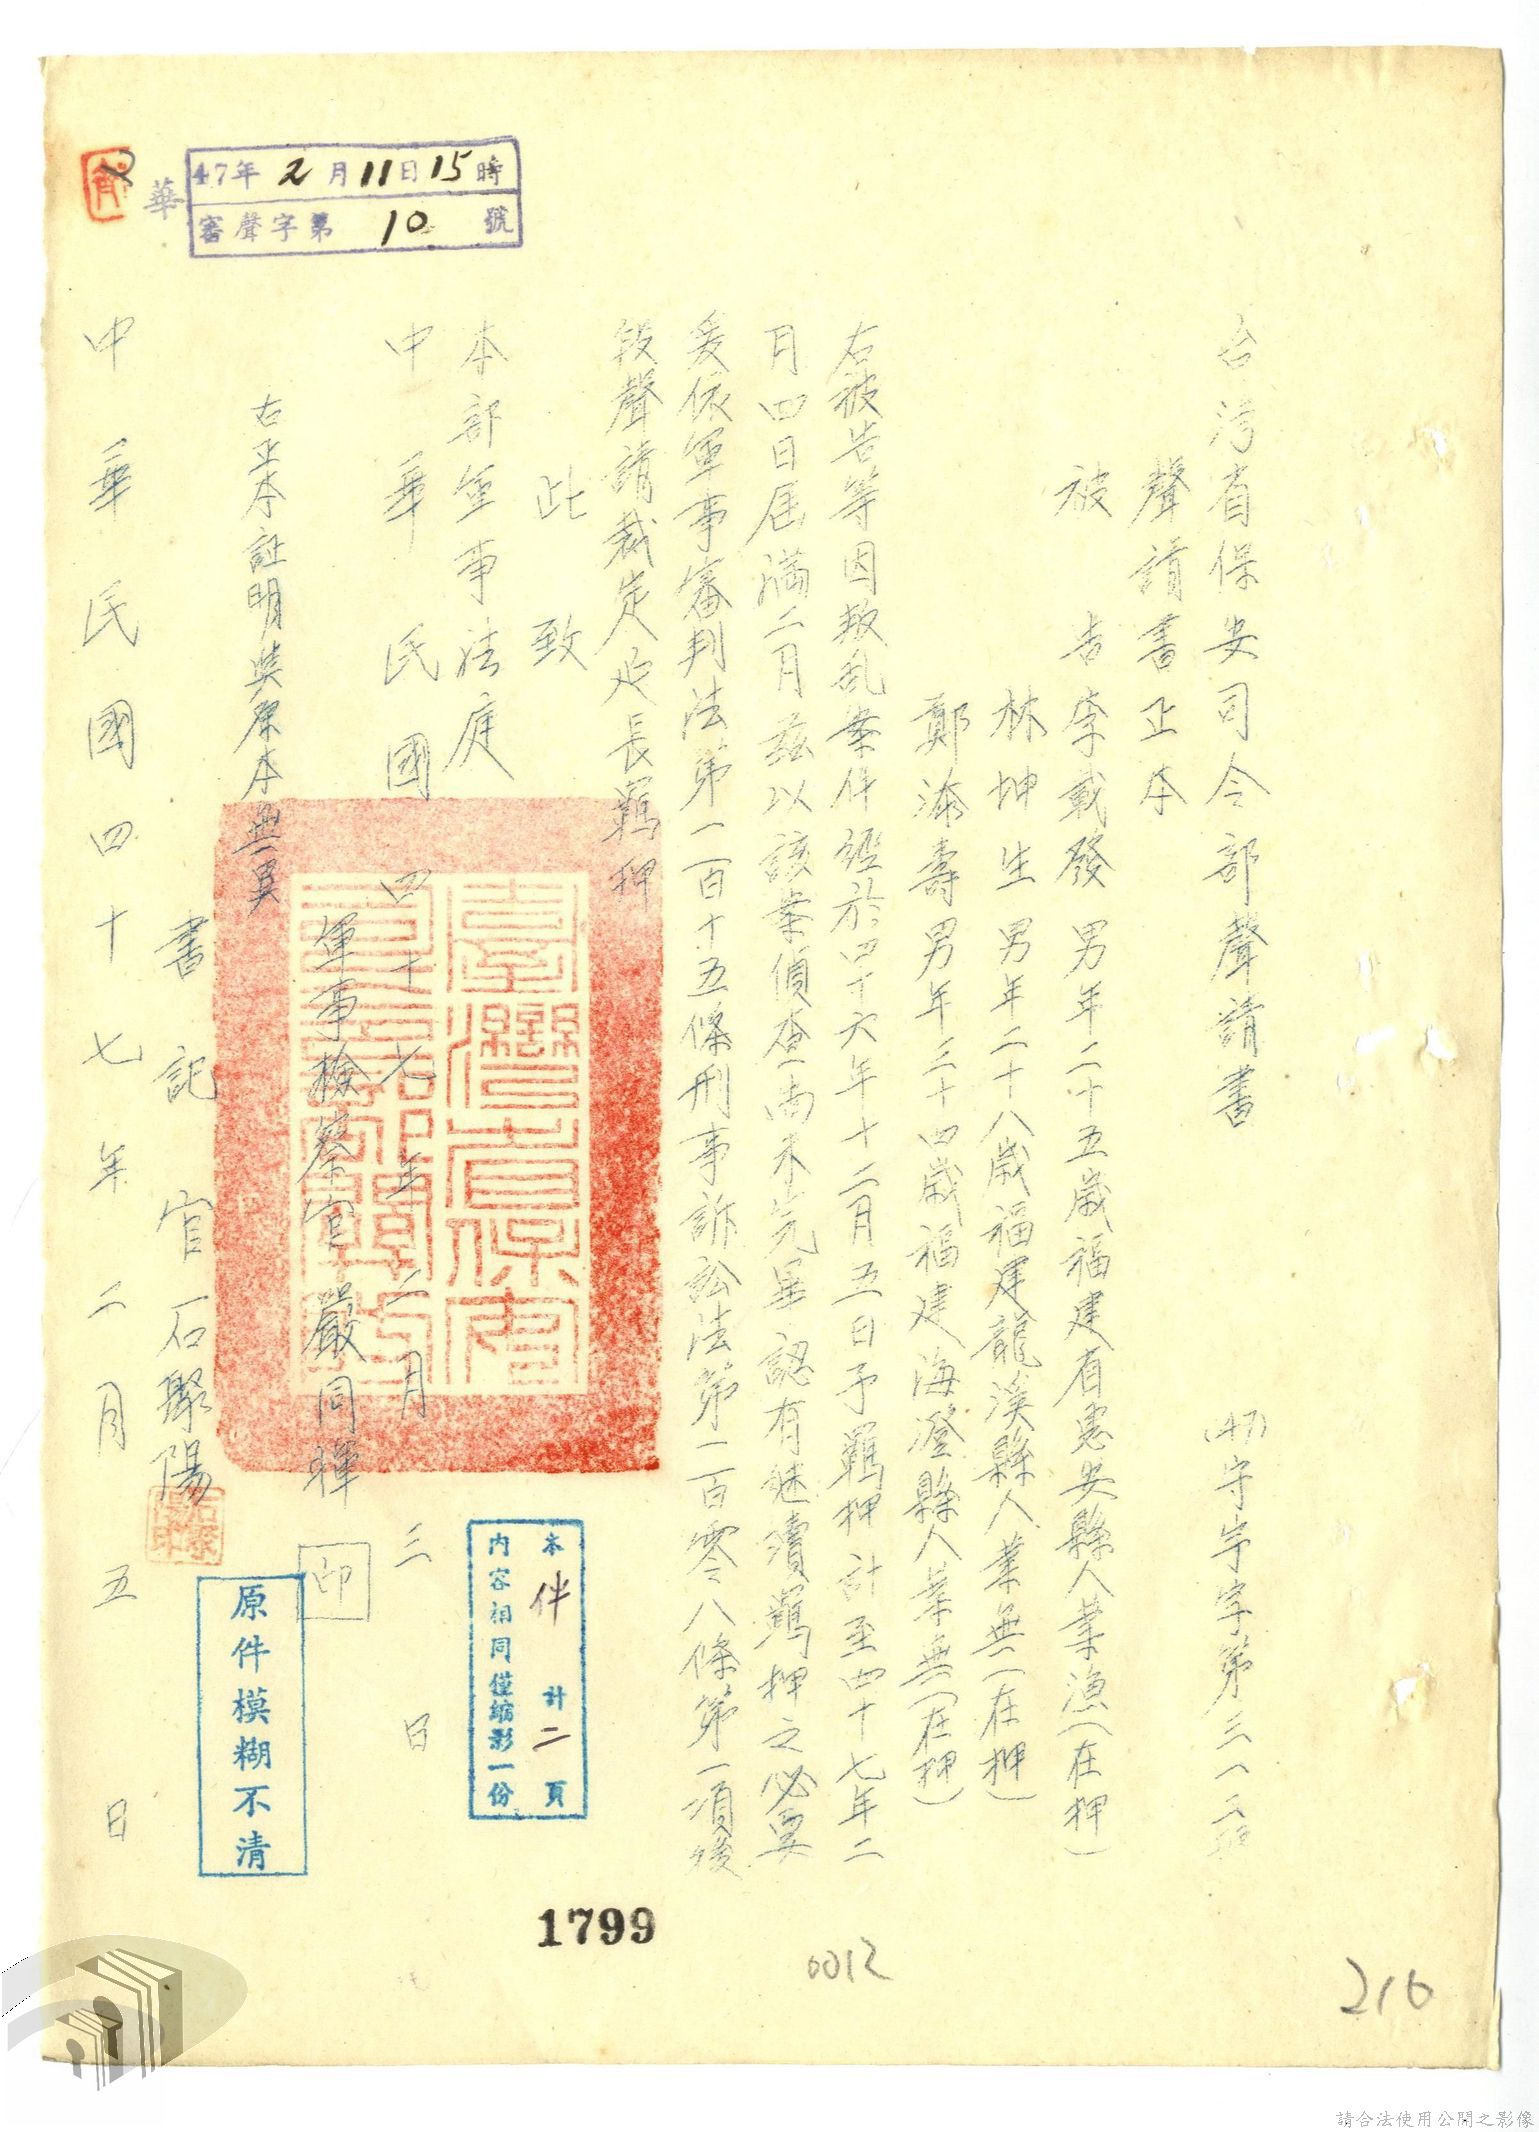 台湾省保安司令部聲請書
(47)宇字第三一二號
聲請書正本
被告李載發男年二十五歲福建省惠安縣人業漁(在押)
林坤生男年二十八歲福建龍溪縣人業無(在押)
鄭添壽男年三十四歲福建海澄縣人業無(在押)
右被告等因叛乱案件經於四十六年十二月五日予羈押計至四十七年二
月四日屆滿二月茲以該案偵查尚未完畢認有继續羈押之必要
爰依軍事審判法第一百十五條刑事訴訟法第一百零八條第一項後
段聲請裁定延長羈押
此致
本部軍事法庭
中華民國四十七年二月三日
軍事檢察官嚴同輝
印
右正本証明與原本無異
書記官石聚陽
中華民國四十七年二月五日
47年2月11日15時
審聲字第10號
華
本件計二頁
內容相同僅縮影一份
原件模糊不清
石聚陽印
1799
0012
216
請合法使用公開之影像